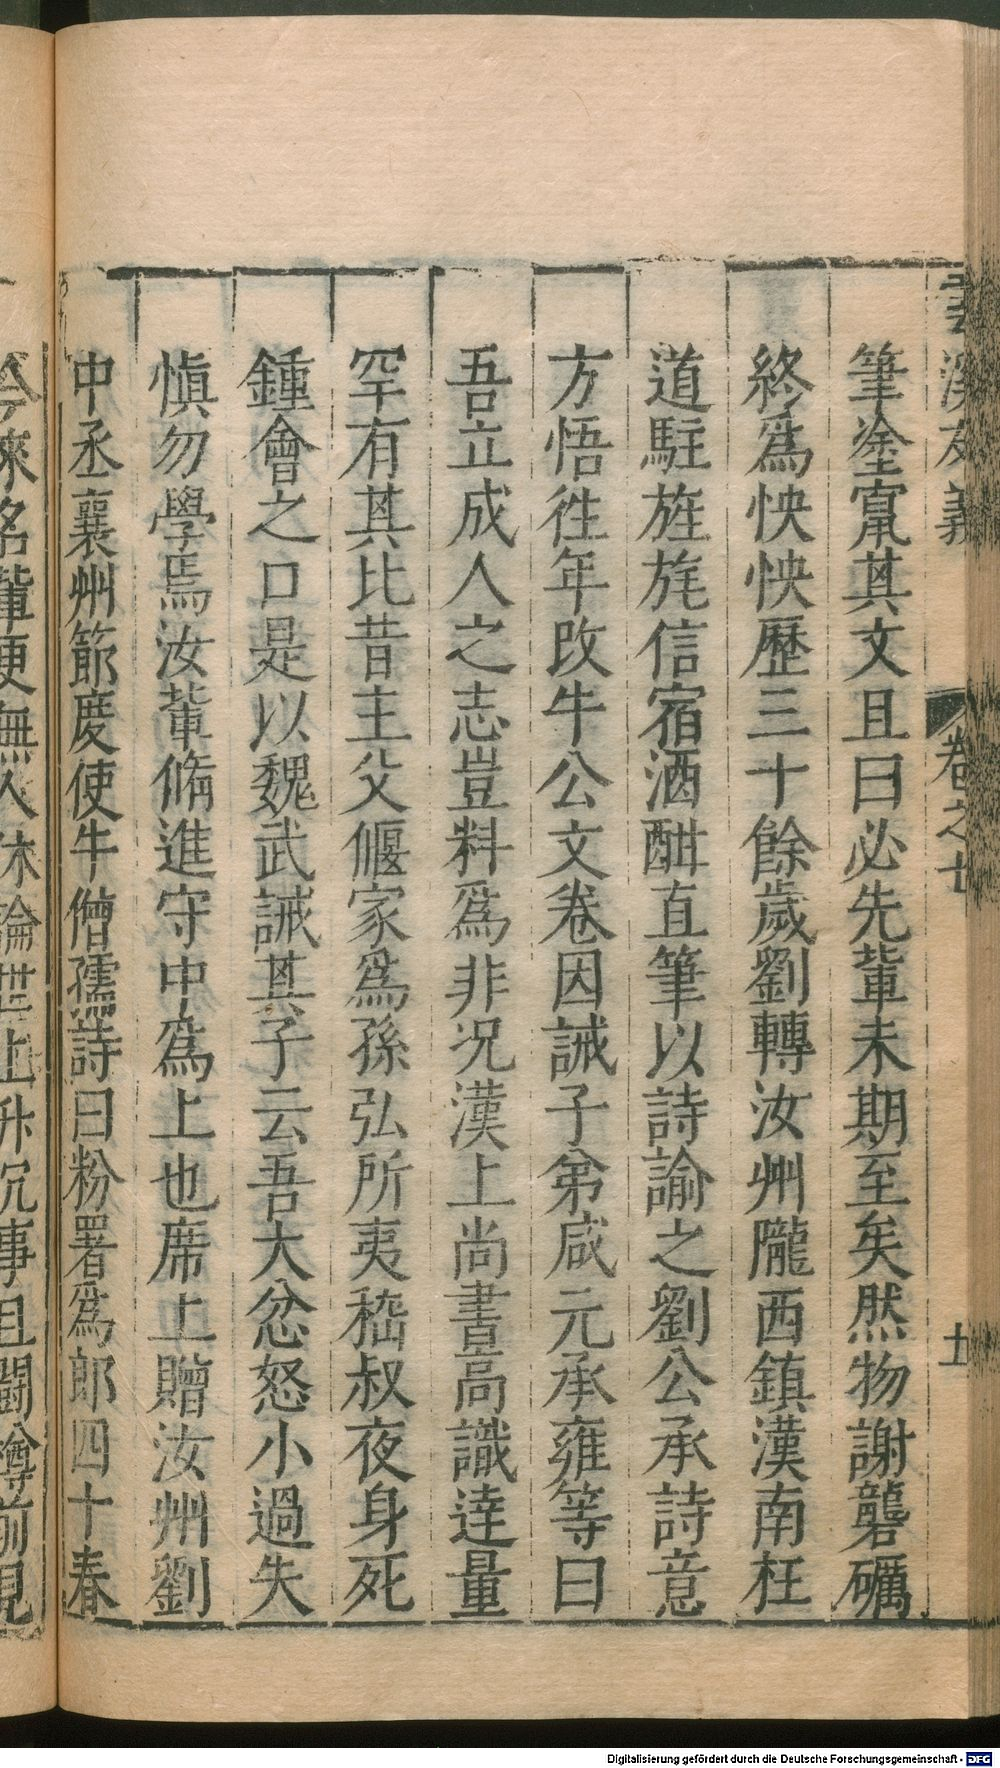 雲溪友議
卷之七
筆塗竄其文且曰必先輩未期至矣然物謝礱礪
終爲怏怏歷三十餘歲劉轉汝州隴西鎮漢南枉
道駐旌旄信宿酒酣直筆以詩諭之劉公承詩意
方悟徃年改牛公文卷因誡子弟咸元承雍等曰
吾立成人之志豈料爲非况漢上尚書高識達量
罕有其比昔主父偃家爲孫弘所夷嵇叔夜身死
鍾會之口是以魏武誡其子云吾大忿怒小過失
愼勿學焉汝輩脩進守中爲上也席上贈汝州劉
中丞襄州節度使牛僧孺詩曰粉署爲郎四十春
今來名輩更無人休論世上升沉事且鬬樽前見
Digitalisierung gefördert durch die Deutsche Forschungsgemeinschaft - DFG